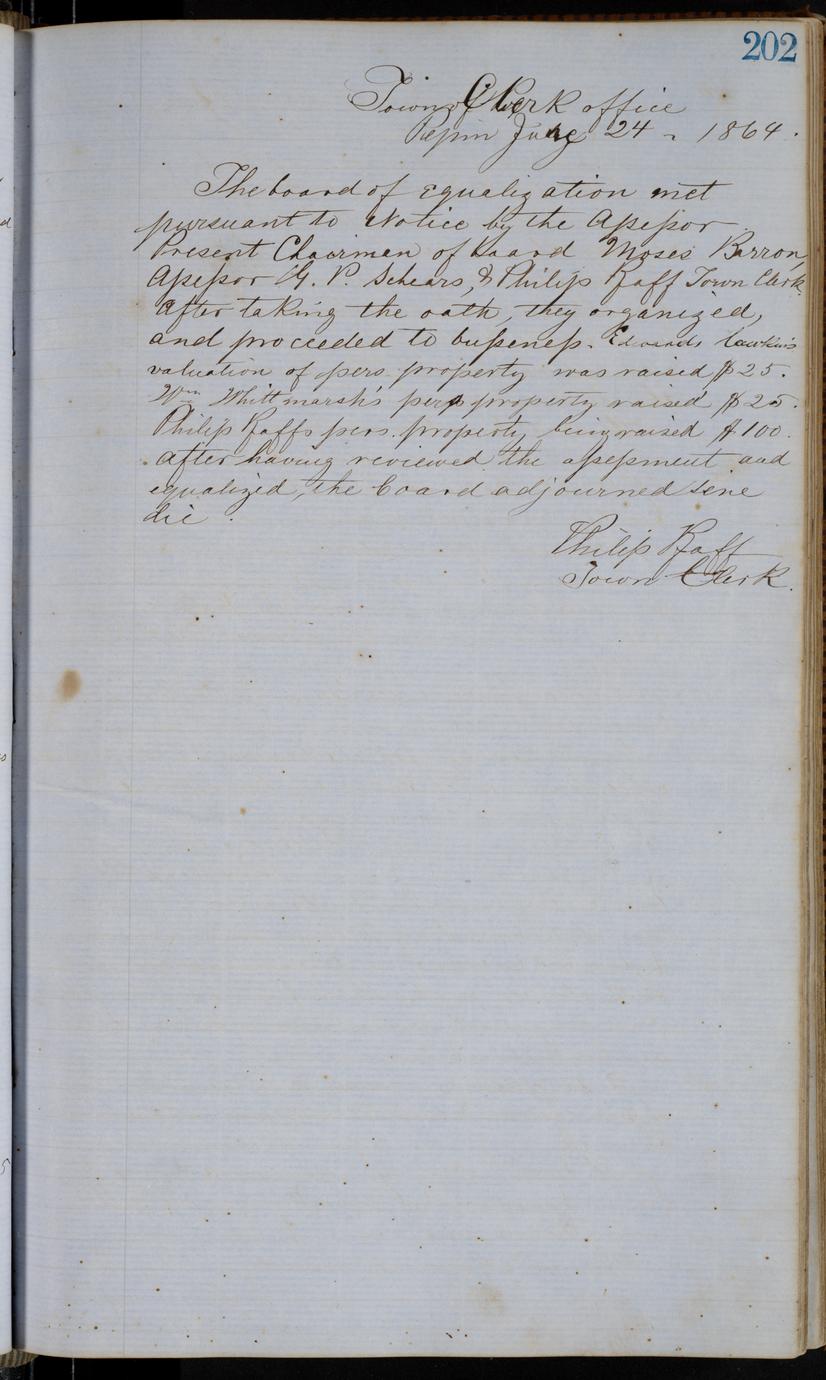 202
Town Clerk office
Pepin June 24 - 1864.
The board of equalization met
pursuant to Notice by the Assessor
Present Chairman of board Moses Barron,
Assessor G. P. Schears, & Philip Raff Town Clerk.
After taking the oath, they organized,
and proceeded to bussness. Edwards
valuation of pers. property was raised $25.
Wm Whittmarsh's pers property raised $25.
Philip Raffs pers. property being raised $100.
After having reviewed the assessment and
equalized, the board adjourned sene
die.
Philip Raff
Town Clerk.